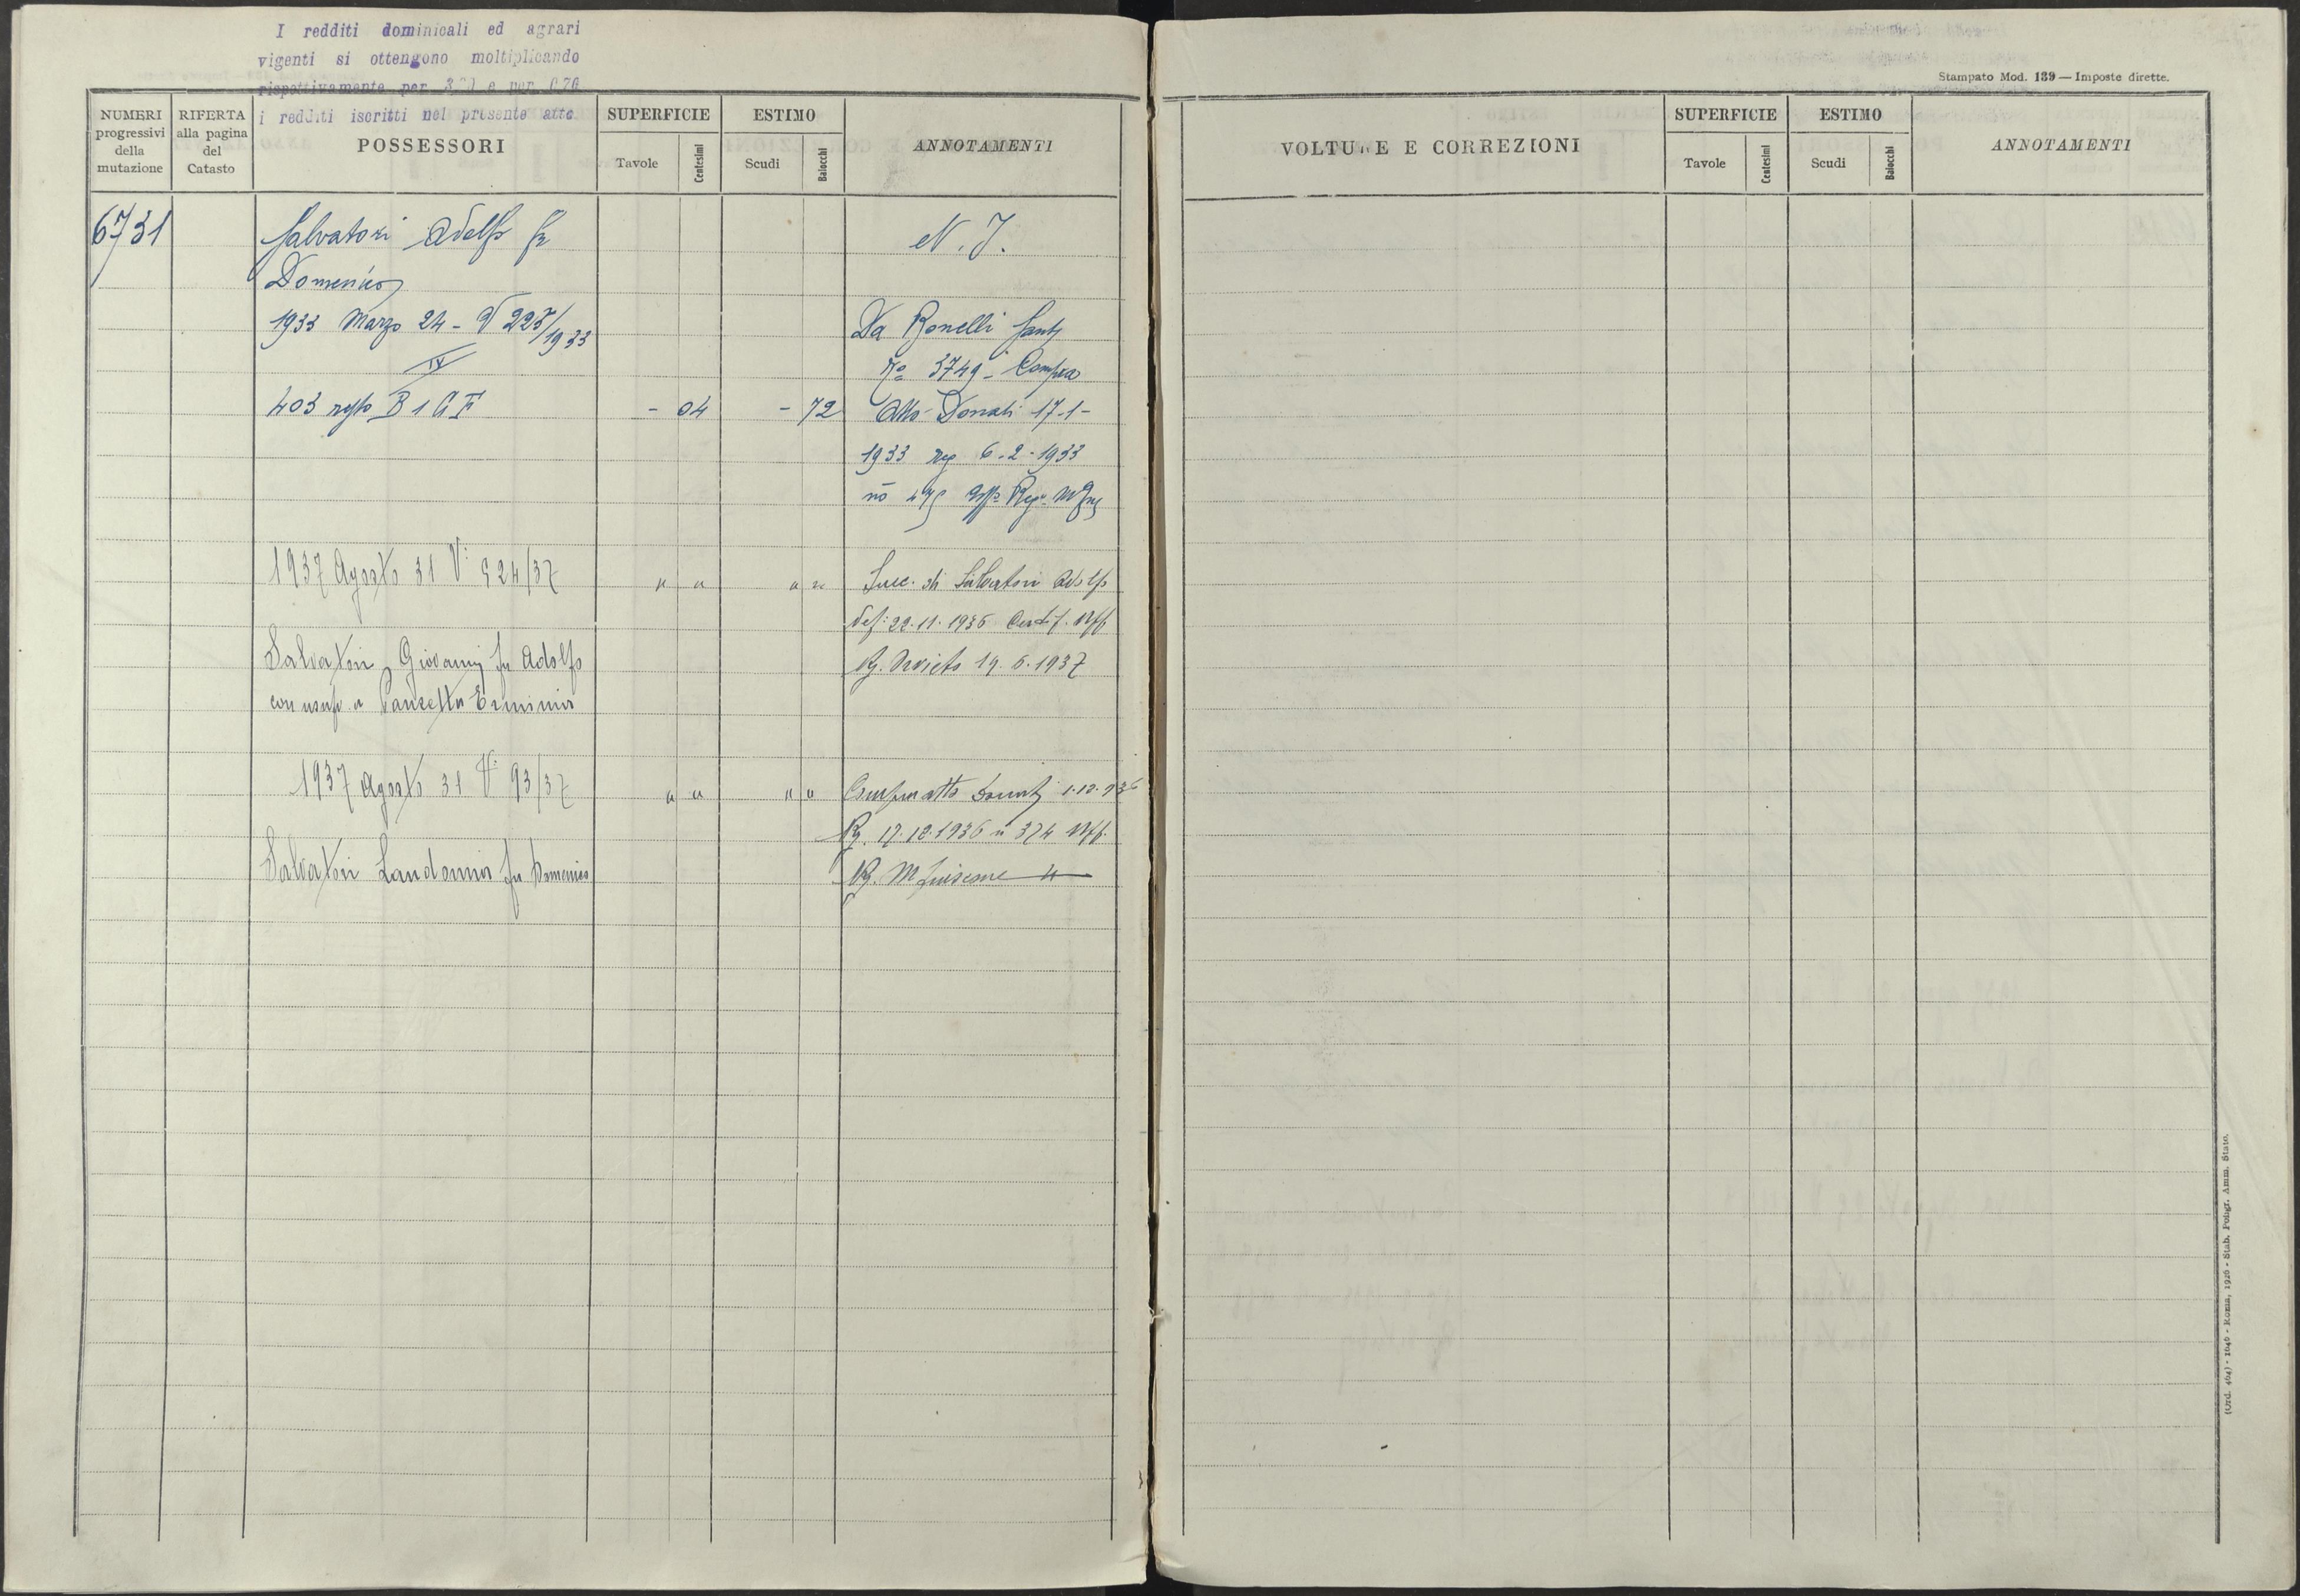 I redditi dominicali ed agrari
vigenti si ottengono moltiplicando
rispettivamente per e per 0,70
i redditi iscritti nel presente atto
NUMERI progressivi della mutazione
RIFERTA alla pagina del Catasto
POSSESSORI
SUPERFICIE
Tavole
Centesimi
ESTIMO
Scudi
Baiocchi
ANNOTAMENTI
6731
Salvatori Adolfo fu
N. I.
Domenico
1933 Marzo 24 - V 225/1933
Da Bonelli
IV
No 3749 - Compra
403 B 1 A F
- 04
- 72
Atto Donati 17-1-
1933 reg 6-2-1933
no
1937 Agosto 31 V: 924/37
" "
" "
Succ. di Salvatori Adolfo
def: 22.11.1936 Certif. Uff.
Salvatori Giovanni fu Adolfo
Rg. Orvieto 19.6.1937
con usuf. a Erminia
1937 Agosto 31 V: 93/37
" "
" "
Compra atto Donati 1.12.936
Rg. 17.12.1936 n 374 Uff.
Salvatori Landomia fu Domenico
Rg. "
Stampato Mod. 139 — Imposte dirette.
VOLTURE E CORREZIONI
SUPERFICIE
Tavole
Centesimi
ESTIMO
Scudi
Baiocchi
ANNOTAMENTI
Roma, 1926 - Stab. Poligr. Amm. Stato.